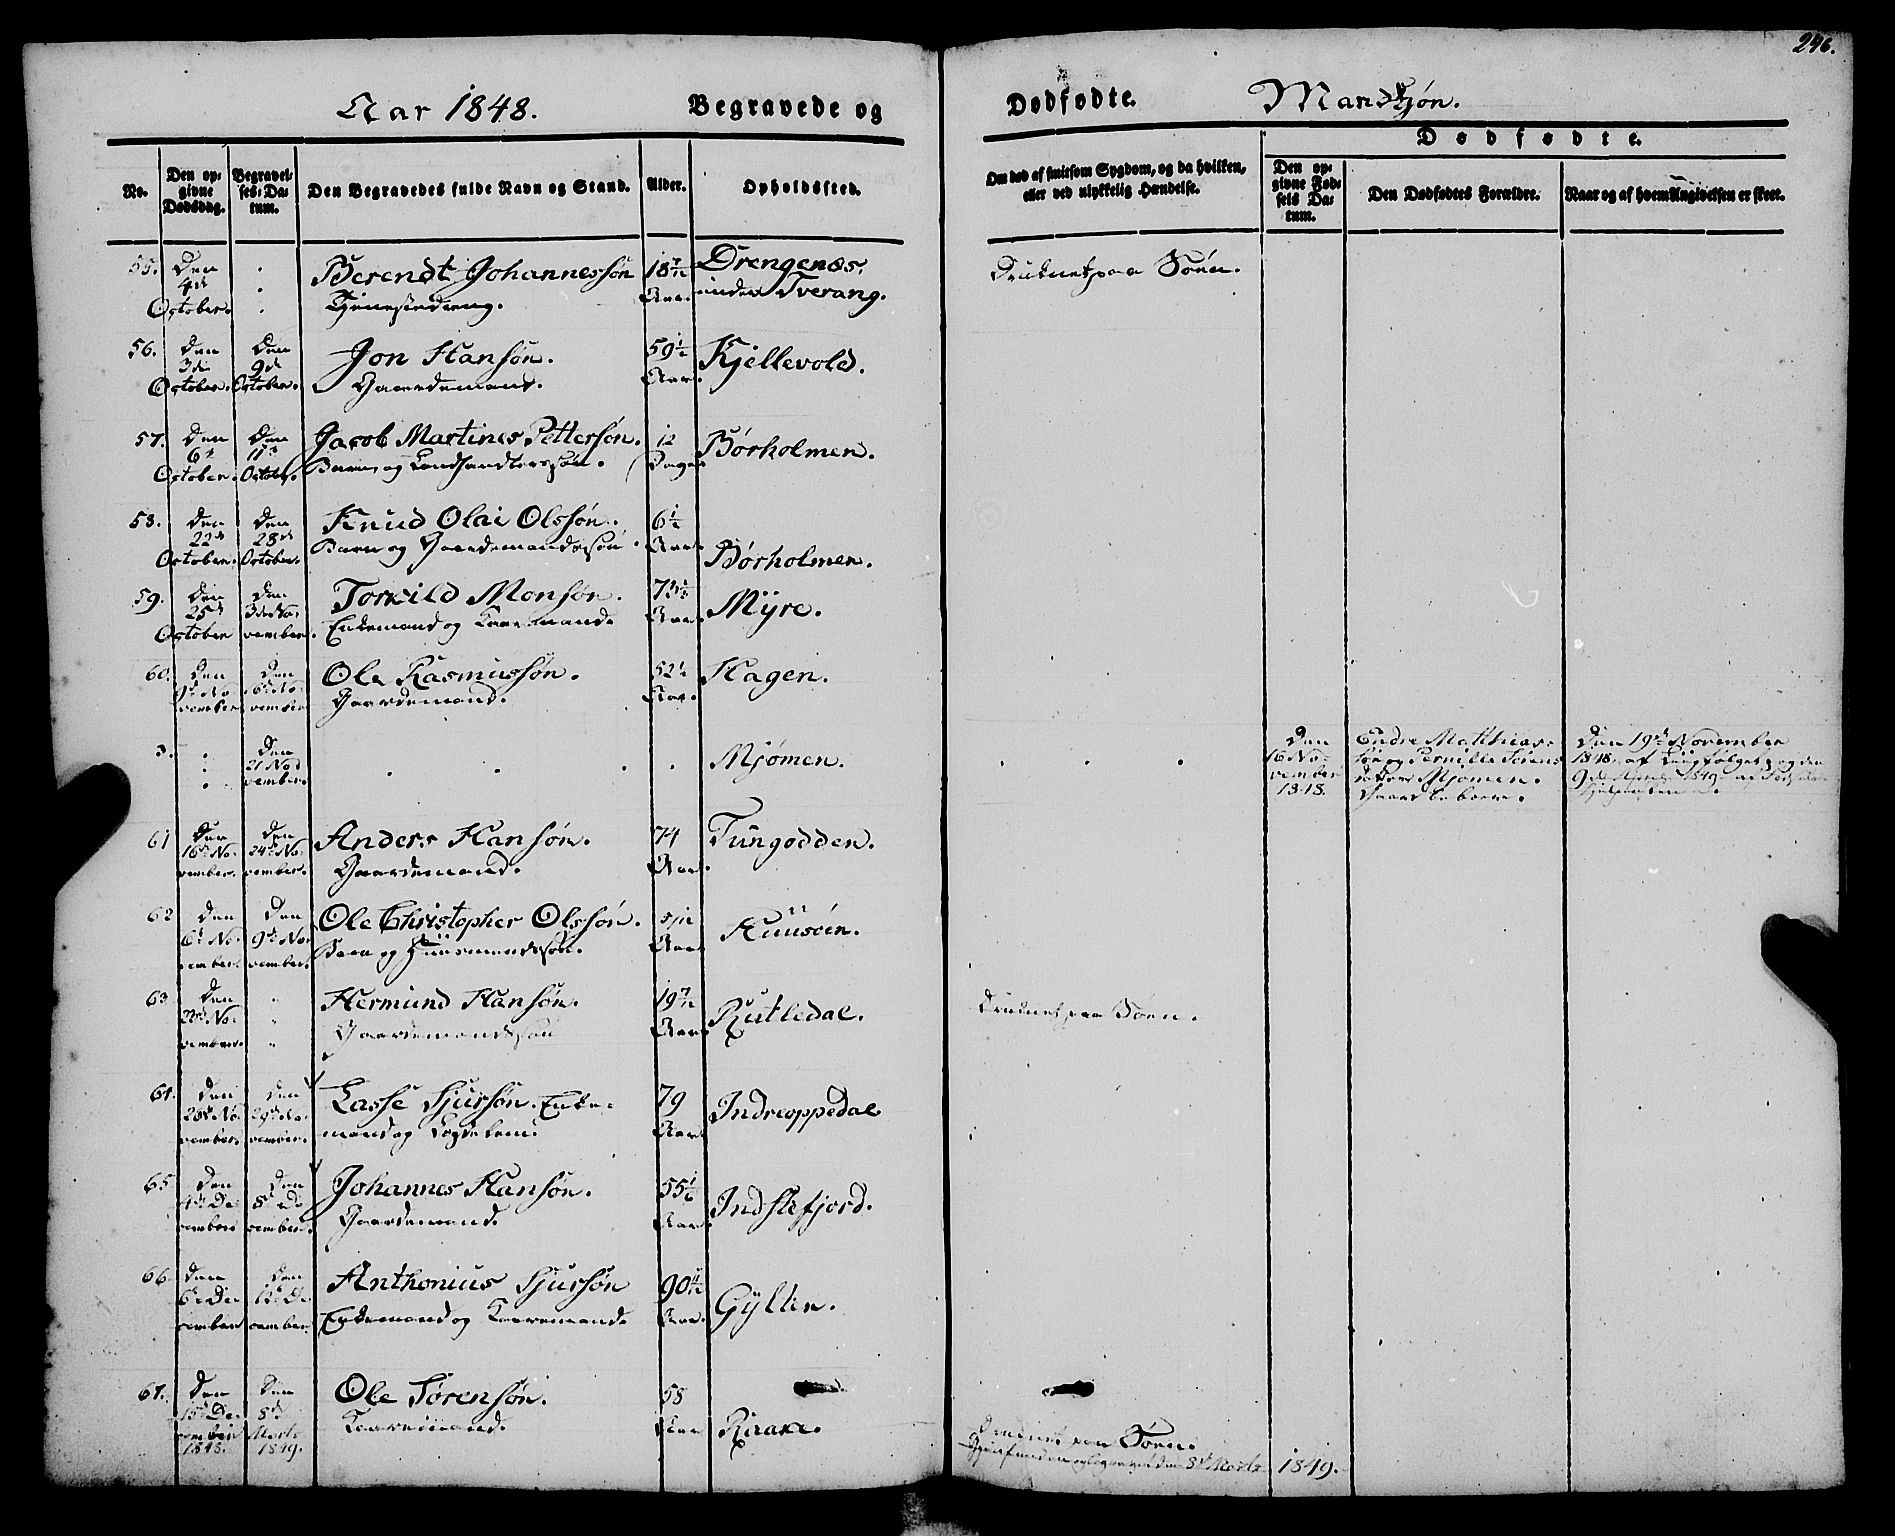 246.
Aar 1848.
Begravede og
Dødfødte.
Mandkjøn.
No.
Den opgivne Dødsdag.
Begravelses-Datum.
Den Begravedes fulde Navn og Stand.
Alder.
Opholdssted.
Om død af smitsom Sygdom, og da hvilken,
eller ved ulykkelig Hændelse.
Dødfødte.
Den opgivne Fødsels Datum.
Den Dødfødtes Forældre.
Naar og af hvem Angivelsen er skeet.
55. Den 4de October. Berendt Johannessøn 18 7/12 Drengenæs,
Tjenestedreng. Aar. under Tverang. Druknet paa Søen.
56. Den 3die October. Den 9de October. Jon Hansøn. 59½ Kjellevold.
Gaardemand. Aar.
57. Den 6te October. Den 11te October. Jacob Martines Pettersøn. 12 Børholmen.
Barn og Landhandlerssøn. Dage
58. Den 22de October. Den 28de October. Knud Olai Olssøn. 6½
Barn og Gaardemandssøn. Aar. Børholmen.
59. Den 25de October Den 3die November. Torkild Monsøn. 73½ Myre.
Enkemand og Kaaremand. Aar.
60. Den November Den 6te November Ole Rasmussøn. 52½ Hagen.
Gaardemand. Aar.
3. Den 21 November. Mjømen.
Den 16 November 1848.
Endre Matthias-
søn og Pernille Sørens
datter Mjømen.
Gaardebeboere.
Den 19de November
1848, af og den
1849 af
61 Den 16de November. Den 24de November. Anders Hansøn. 74 Tungodden.
Gaardemand. Aar.
62 Den 6te November. Den 9de November. Ole Christopher Olssøn. 5/12 Kuusøen.
Barn og Huusmandssøn. Aar
63 Den November. Hermund Hansøn. 19 7/12 Rutledal.
Gaardemandssøn Aar Druknet paa Søen.
64. Den 26de November. Den 29de November. Lasse Sjursøn. Enke- 79 Indreoppedal
mand og Lægdslem. Aar
65 Den 4de December Den 8de December. Johannes Hansøn. 55 Indstefjord.
Gaardemand. Aar.
66 Den 6te December Den December Anthonius Sjursøn 90 11/12 Gylten.
Enkemand og Kaaremand. Aar.
67. Den 15de December 1848. Den 8de Marts 1849. Ole Sørensøn. 58
Kaaremand. Aar Risnæs.
Druknet paa Søen.
Gjenfunden og begravet den 8de Marts 1849.